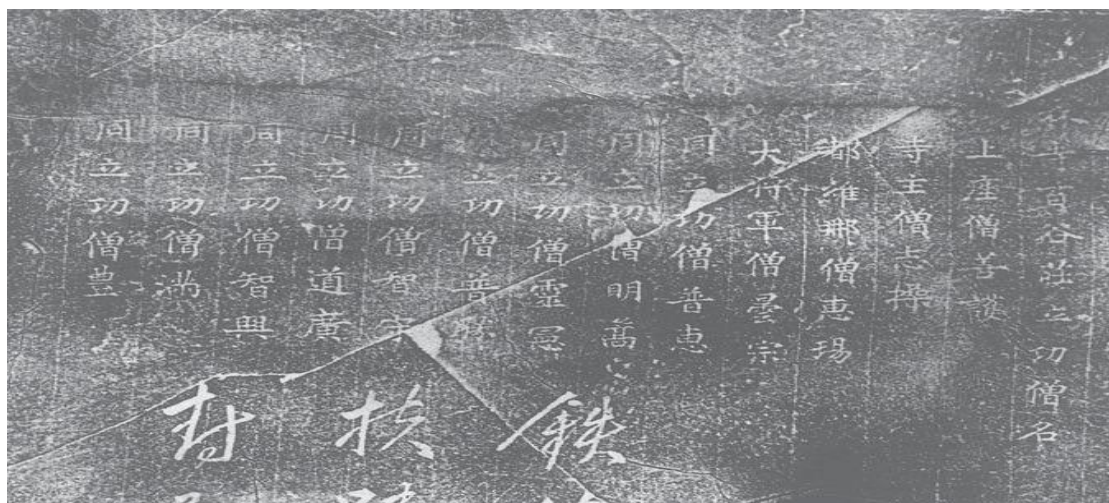 寺百谷莊立功僧名
上座僧善護
寺主僧志操
都維那僧惠瑒
大将軍僧曇宗
同立功僧普惠
同立功僧明嵩
同立功僧靈憲
同立功僧普勝
同立功僧智守
同立功僧道廣
同立功僧智興
同立功僧滿
同立功僧豊